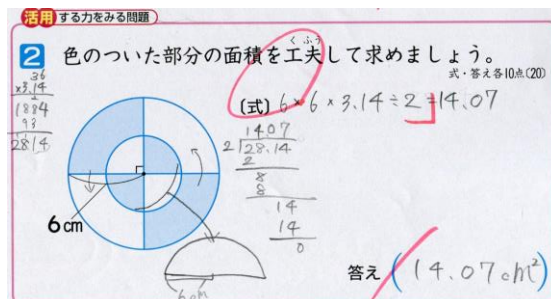 活用 する力をみる問題
2 色のついた部分の面積を工夫して求めましょう。
くふう
式・答え各10点(20)
36
×3.14
2
1884
93
2814
(式) 6×6×3.14÷2=14.07
14.07
2 28.14
2
8
8
14
14
0
6cm
6cm
答え (14.07cm²)